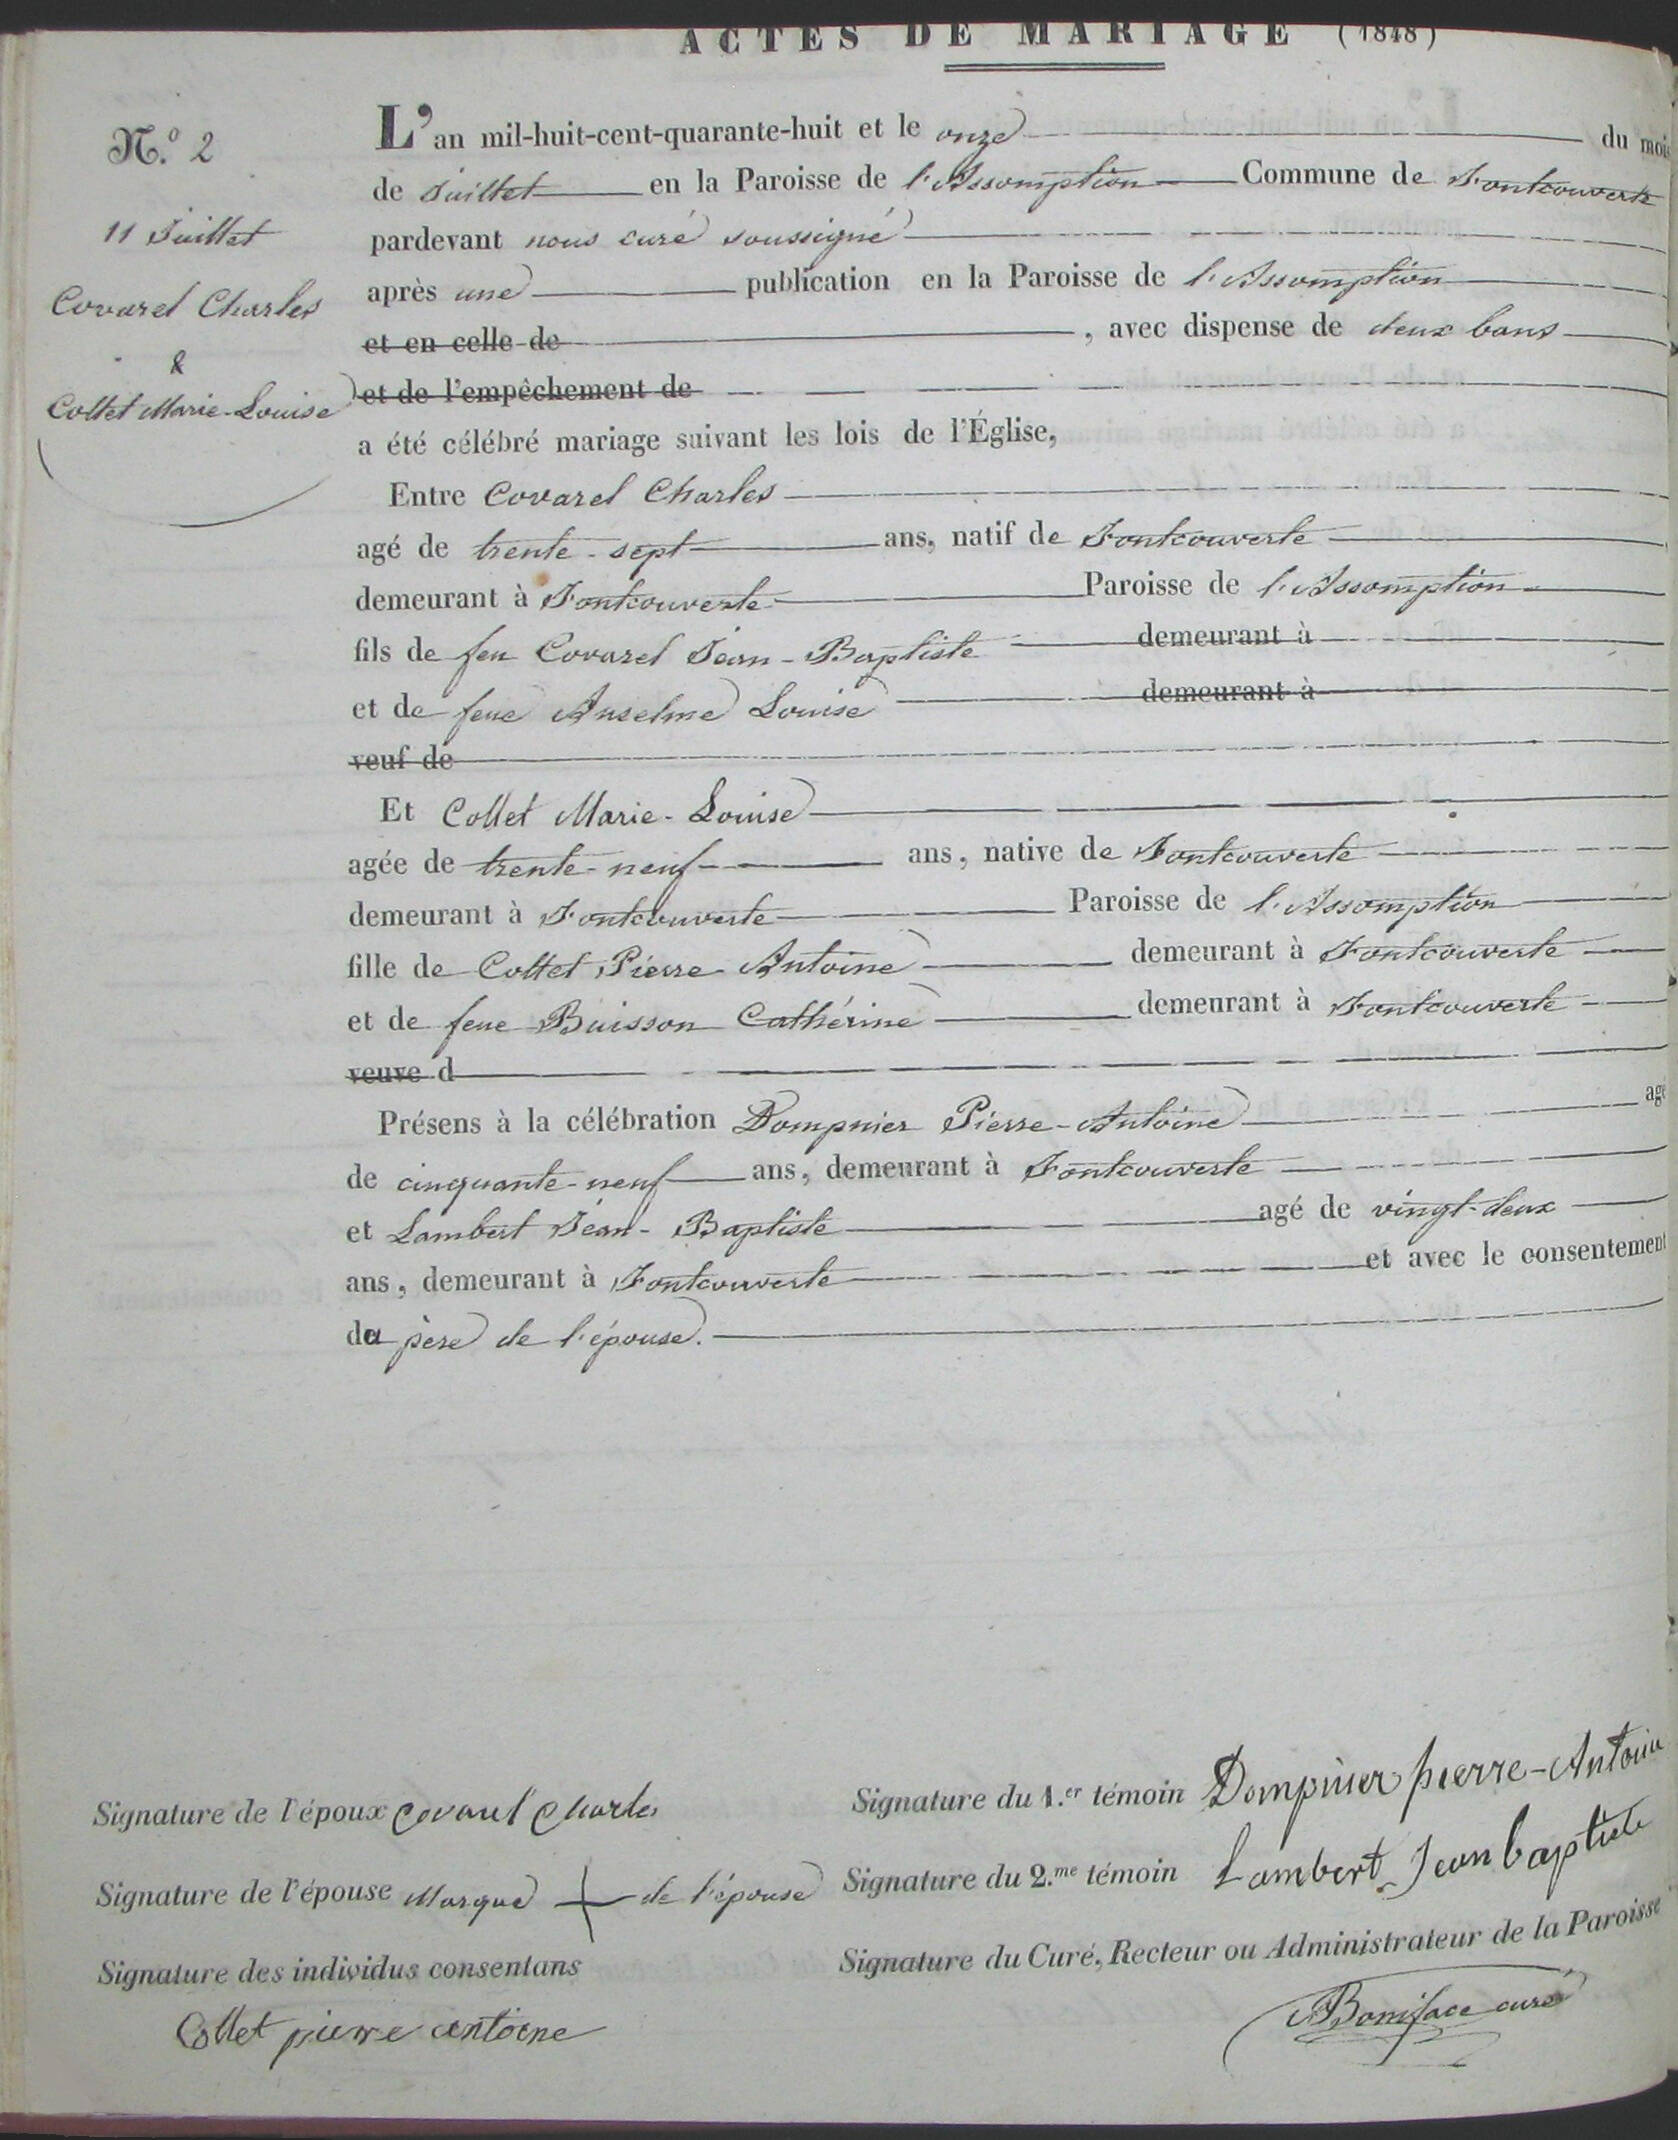 ACTES DE MARIAGE (1848)
N.º 2
11 Juillet
Covarel Charles
&
Collet Marie-Louise
L'an mil-huit-cent-quarante-huit et le onze du mois
de Juillet en la Paroisse de l'Assomption Commune de Fontcouverte
pardevant nous curé soussigné
après une publication en la Paroisse de l'Assomption
et en celle de , avec dispense de deux bans
et de l'empêchement de
a été célébré mariage suivant les lois de l'Église,
Entre Covarel Charles
agé de trente-sept ans, natif de Fontcouverte
demeurant à Fontcouverte Paroisse de l'Assomption
fils de feu Covarel Jean-Baptiste demeurant à
et de feue Anselme Louise demeurant à
veuf de
Et Collet Marie-Louise
agée de trente-neuf ans, native de Fontcouverte
demeurant à Fontcouverte Paroisse de l'Assomption
fille de Collet Pierre Antoine demeurant à Fontcouverte
et de feue Buisson Cathérine demeurant à Fontcouverte
veuve d
Présens à la célébration Dompnier Pierre-Antoine agé
de cinquante-neuf ans, demeurant à Fontcouverte
et Lambert Jean-Baptiste agé de vingt-deux
ans, demeurant à Fontcouverte et avec le consentement
du père de l'épouse.
Signature de l'époux Covarel Charles
Signature du 1.er témoin Dompnier pierre-Antoine
Signature de l'épouse Marque + de l'épouse
Signature du 2.me témoin Lambert Jean baptiste
Signature des individus consentans
Collet pierre antoine
Signature du Curé, Recteur ou Administrateur de la Paroisse
Boniface curé